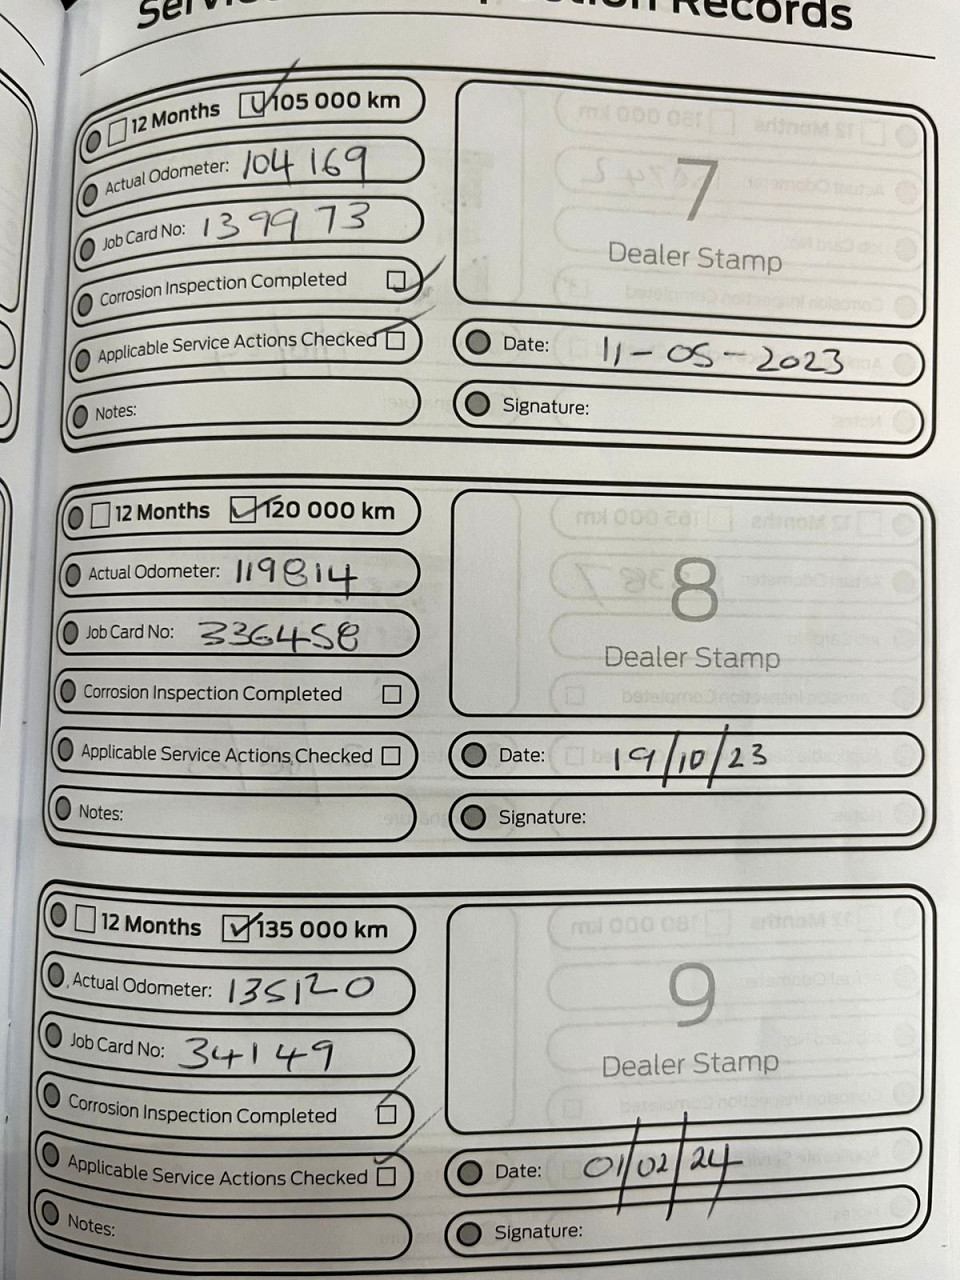 Records
12 Months 105 000 km
Actual Odometer: 104 169
Job Card No: 139973
Corrosion Inspection Completed
Applicable Service Actions Checked
Notes:
7
Dealer Stamp
Date: 11-05-2023
Signature:
12 Months 120 000 km
Actual Odometer: 119814
Job Card No: 336458
Corrosion Inspection Completed
Applicable Service Actions Checked
Notes:
8
Dealer Stamp
Date: 19/10/23
Signature:
12 Months 135 000 km
Actual Odometer: 135120
Job Card No: 34149
Corrosion Inspection Completed
Applicable Service Actions Checked
Notes:
9
Dealer Stamp
Date: 01/02/24
Signature: